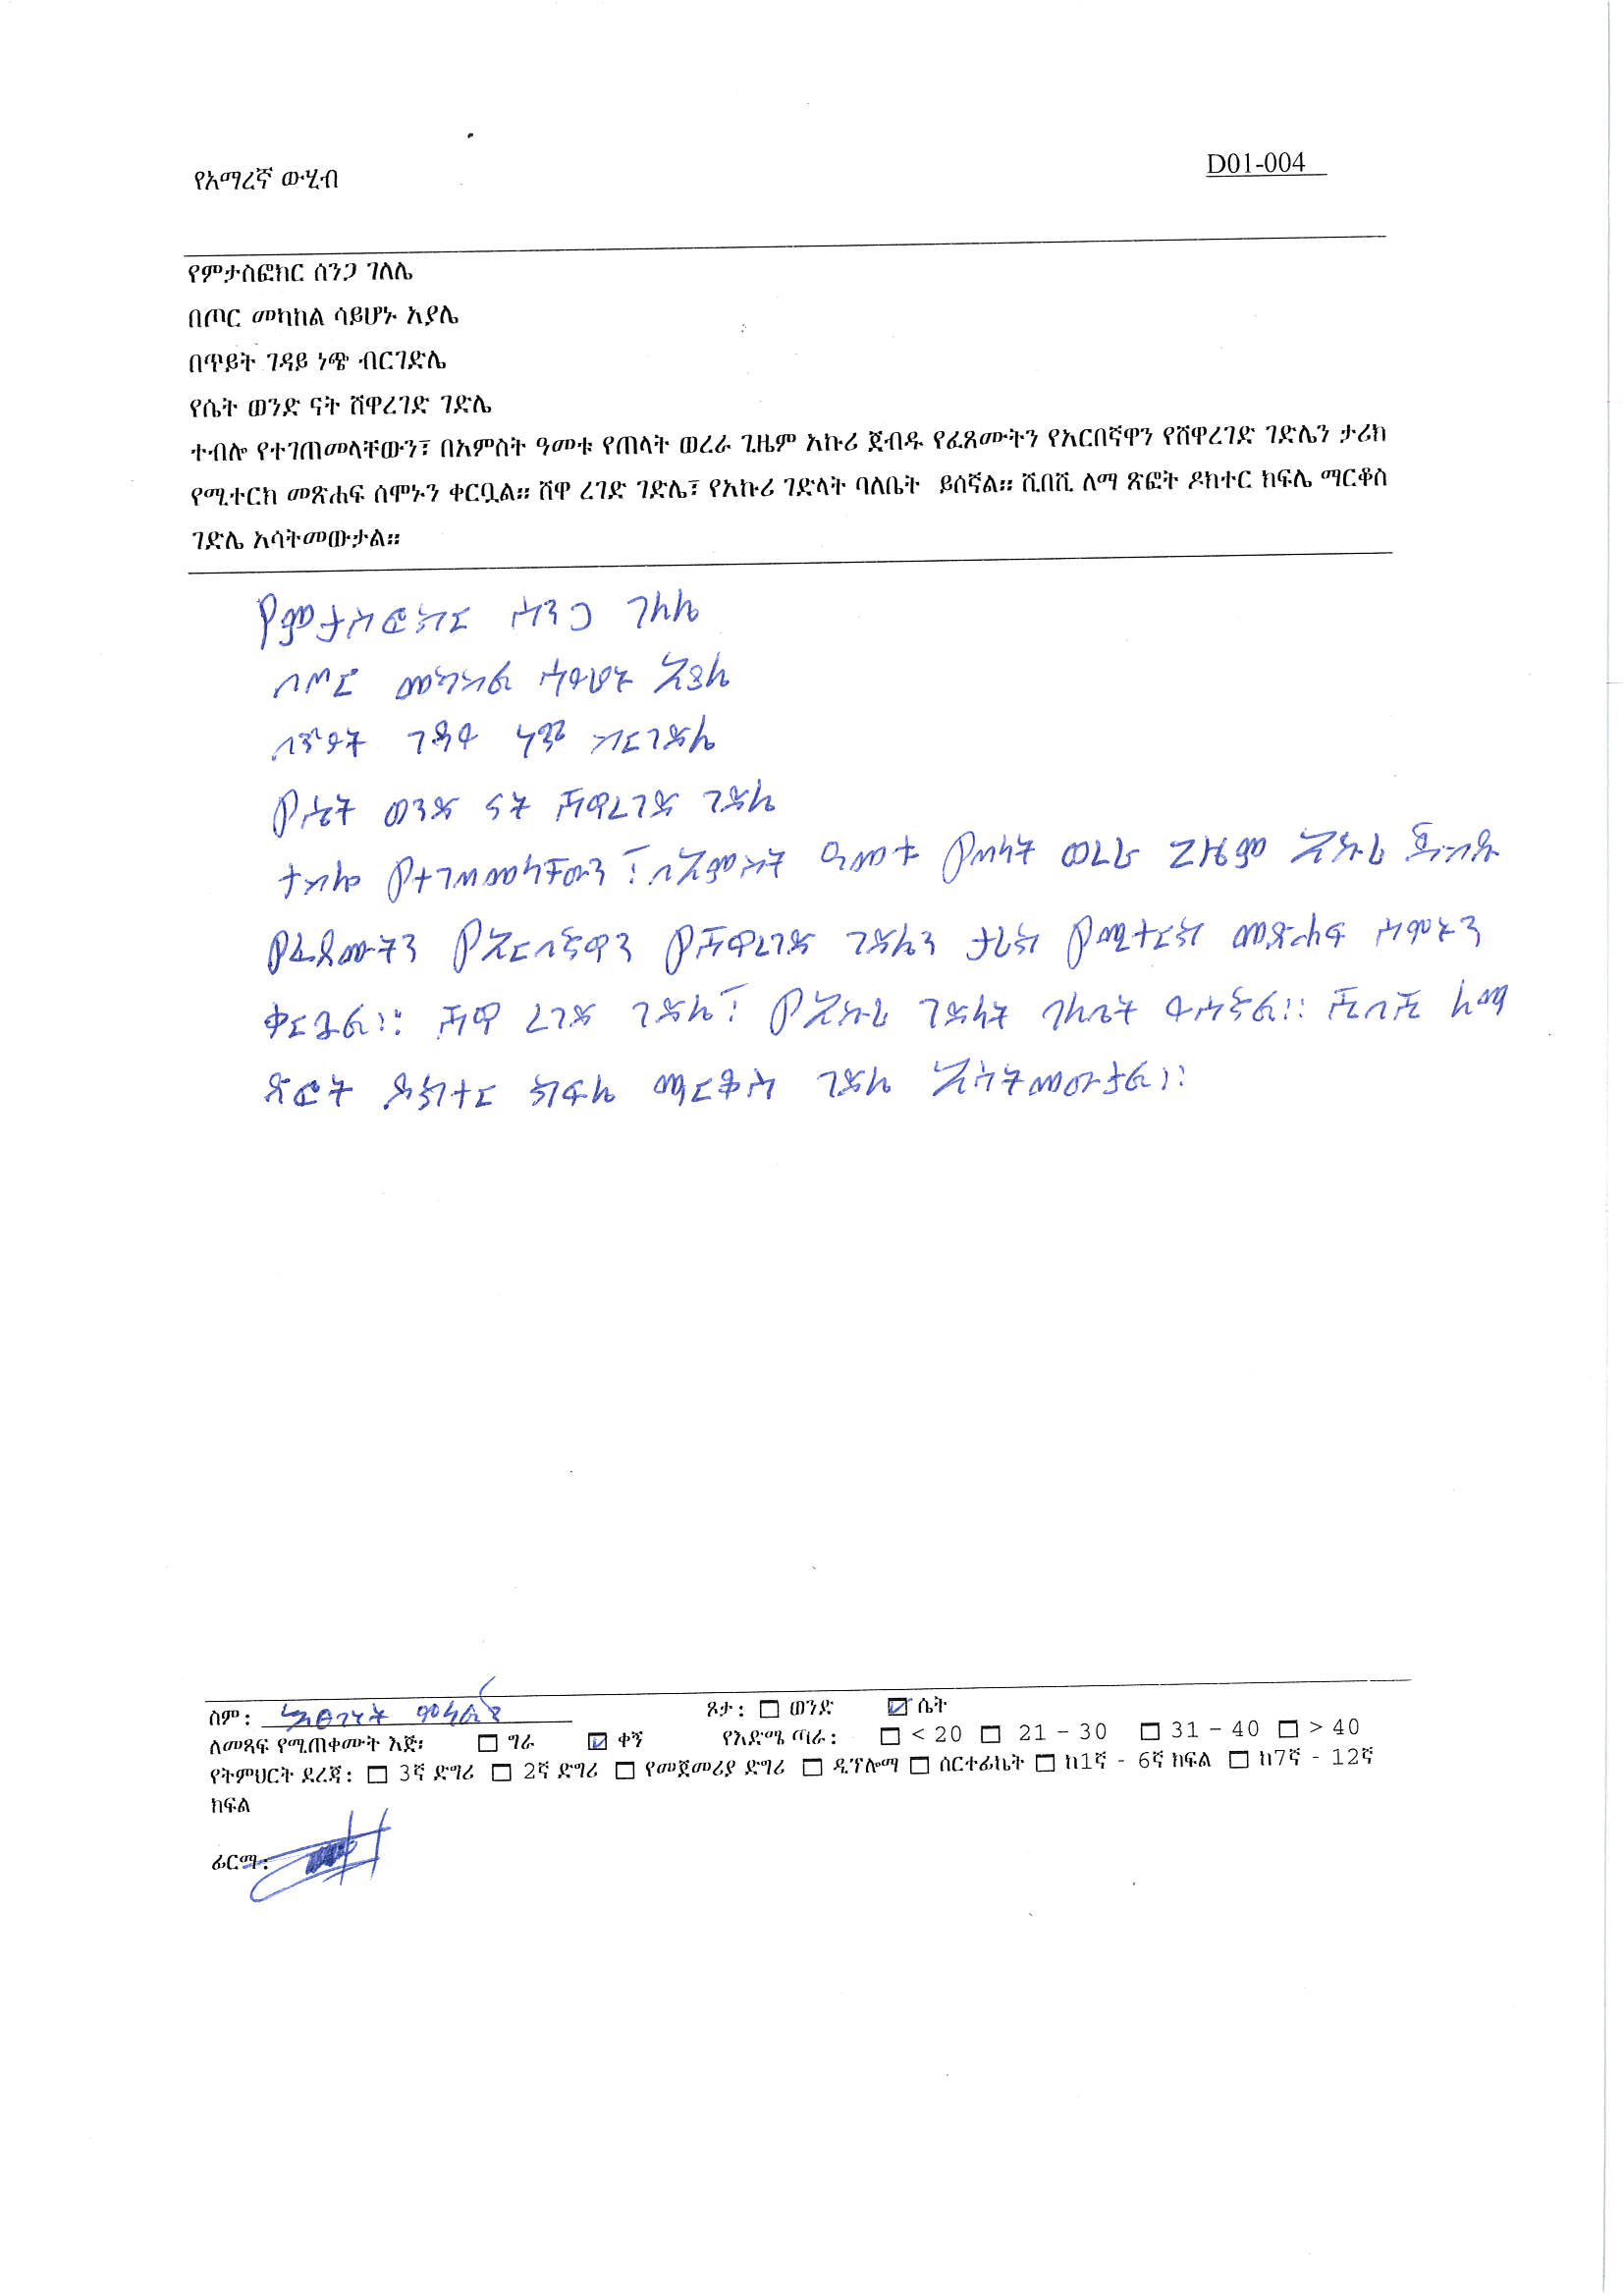 የአማረኛ ውሂብ
D01-004
የምታስፎክር ሰንጋ ገለሌ
በጦር መካከል ሳይሆኑ አያሌ
በጥይት ገዳይ ነጭ ብርገድሌ
የሴት ወንድ ናት ሸዋረገድ ገድሌ
ተብሎ የተገጠመላቸውን፣ በአምስት ዓመቱ የጠላት ወረራ ጊዜም አኩሪ ጀብዱ የፈጸሙትን የአርበኛዋን የሸዋረገድ ገድሌን ታሪክ
የሚተርክ መጽሐፍ ሰሞኑን ቀርቧል። ሸዋ ረገድ ገድሌ፣ የአኩሪ ገድላት ባለቤት ይሰኛል። ሺበሺ ለማ ጽፎት ዶክተር ክፍሌ ማርቆስ
ገድሌ አሳትመውታል።
የምታስፎክር ሰንጋ ገለሌ
በጦር መካከል ሳይሆኑ አያሌ
በጥይት ገዳይ ነጭ ብርገድሌ
የሴት ወንድ ናት ሸዋረገድ ገድሌ
ተብሎ የተገጠመላቸውን ፣ በአምስት ዓመቱ የጠላት ወረራ ጊዜም አኩሪ ጀብዱ
የፈጸሙትን የአርበኛዋን የሸዋረገድ ገድሌን ታሪክ የሚተርክ መጽሐፍ ሰሞኑን
ቀርቧል። ሸዋ ረገድ ገድሌ፣ የአኩሪ ገድላት ባለቤት ይሰኛል። ሺበሺ ለማ
ጽፎት ዶክተር ክፍሌ ማርቆስ ገድሌ አሳትመውታል።
ስም:
ጾታ: ወንድ ሴት
ለመጻፍ የሚጠቀሙት እጅ፡ ግራ ቀኝ የእድሜ ጣራ: < 20 21 - 30 31 - 40 > 40
የትምህርት ደረጃ: 3ኛ ድግሪ 2ኛ ድግሪ የመጀመሪያ ድግሪ ዲፕሎማ ሰርተፊኬት ከ1ኛ - 6ኛ ክፍል ከ7ኛ - 12ኛ
ክፍል
ፊርማ: